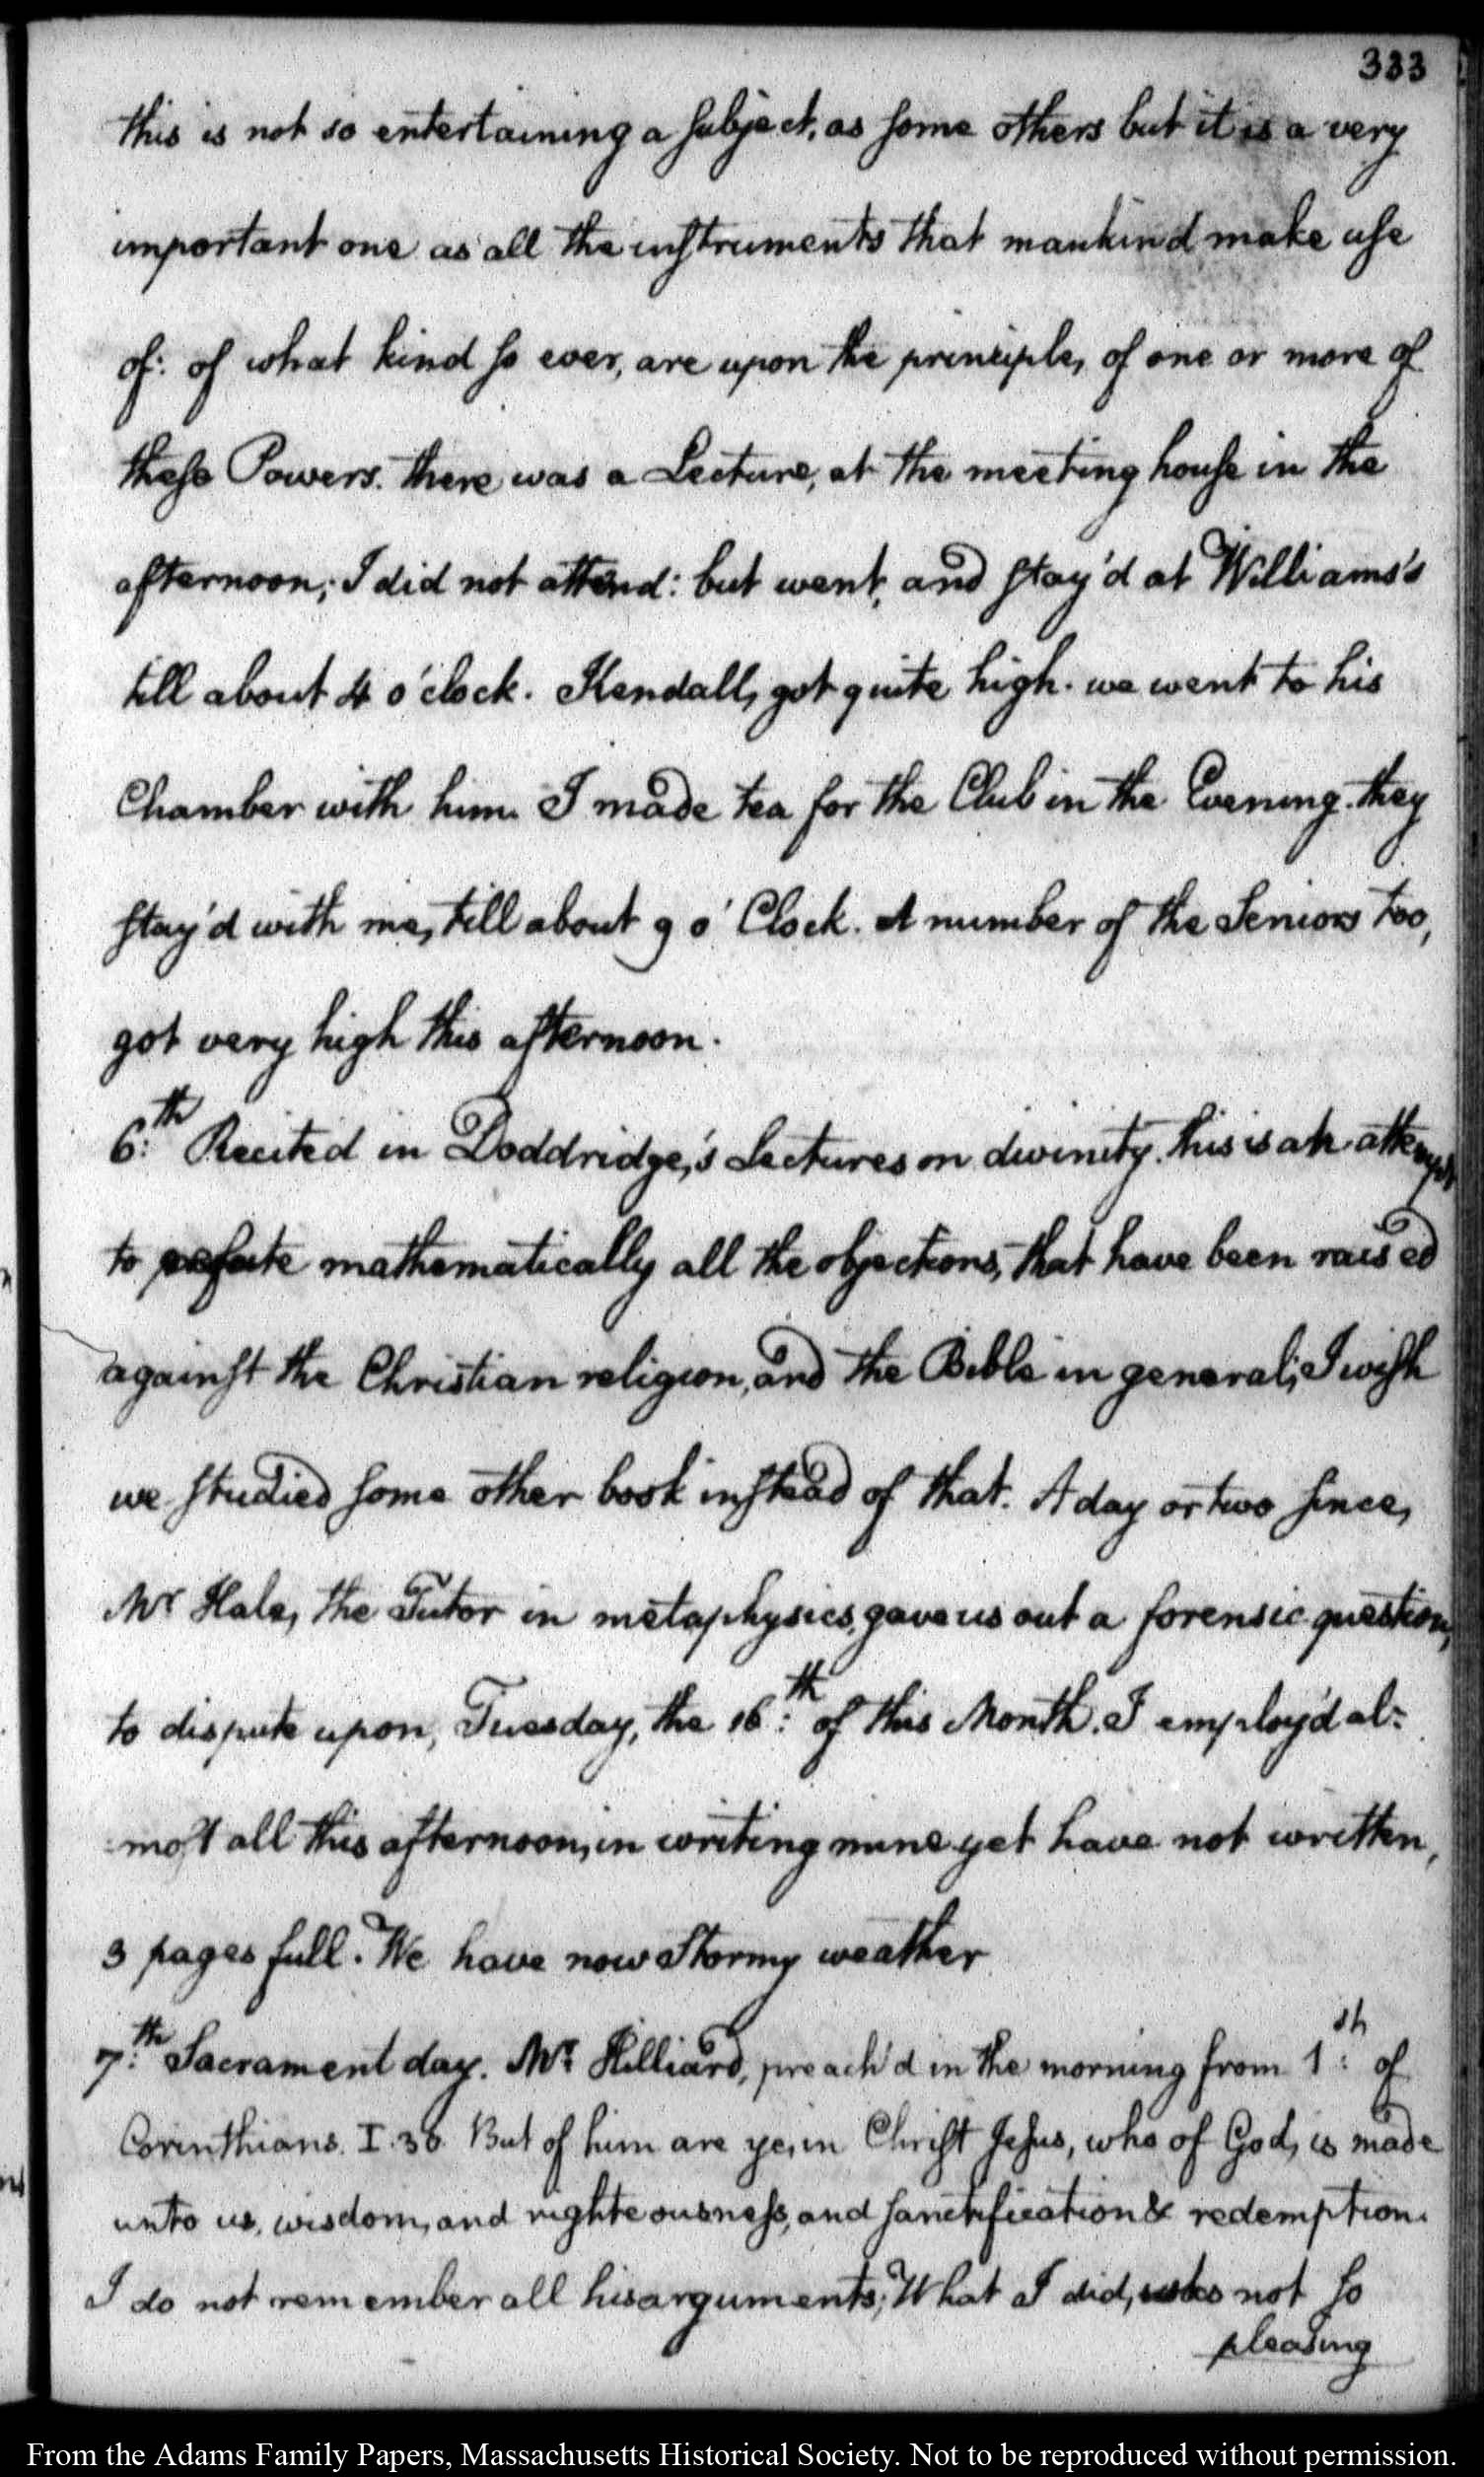 333
this is not so entertaining a subject, as some others but it is a very
important one as all the instruments that mankind make use
of: of what kind so ever, are upon the principle, of one or more of
these Powers. there was a Lecture, at the meeting house in the
afternoon; I did not attend: but went, and stay'd at Williams's
till about 4 o'clock. Kendall, got quite high. we went to his
Chamber with him. I made tea for the Club in the Evening. they
stay'd with me, till about 9 o' Clock. A number of the Seniors too,
got very high this afternoon.
6:th Recited in Doddridge,'s Lectures on divinity. this is an attempt
to refute mathematically all the objections, that have been raised
against the Christian religion, and the Bible in general; I wish
we studied some other book instead of that. A day or two since,
Mr Hale, the Tutor in metaphysics, gave us out a forensic question,
to dispute upon, Tuesday, the 16:th of this Month. I employ'd al-
-most all this afternoon, in writing mine yet have not written,
3 pages full. We have now Stormy weather
7:th Sacrament day. Mr Hilliard, preach'd in the morning from 1:st of
Corinthians. I. 30. But of him are ye, in Christ Jesus, who of God, is made
unto us, wisdom, and righteousness, and sanctification & redemption.
I do not remember all his arguments; What I did, was not so
pleasing
From the Adams Family Papers, Massachusetts Historical Society. Not to be reproduced without permission.